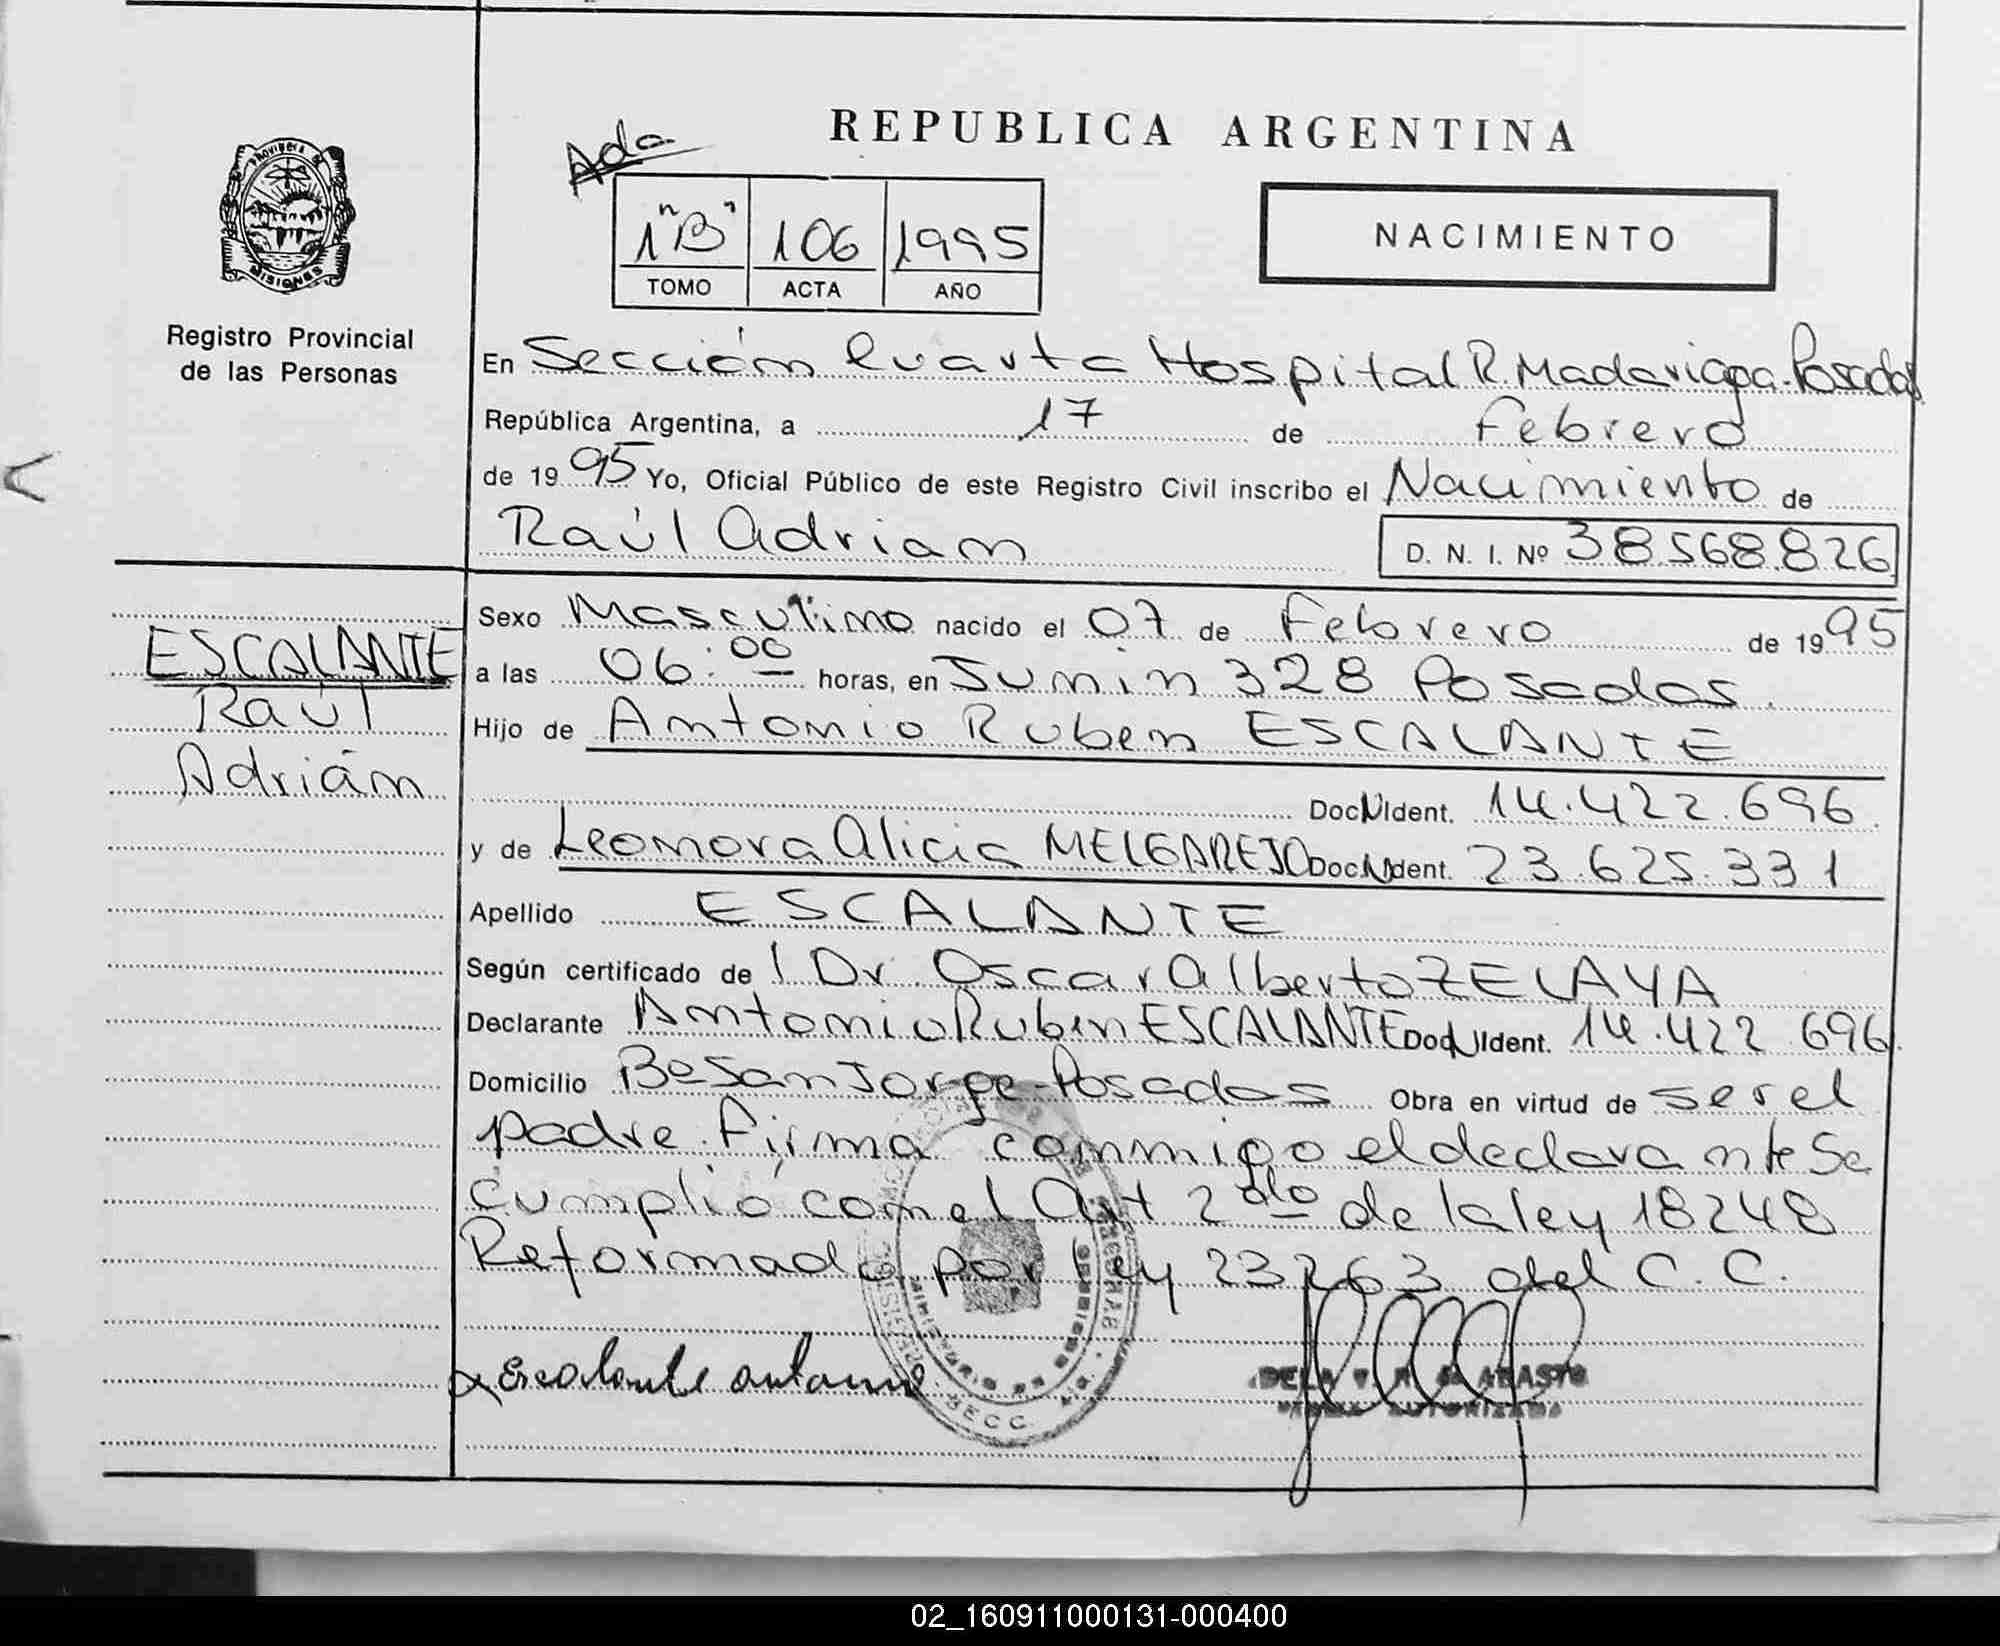 REPUBLICA ARGENTINA
Ada
1"B" 106 1995
TOMO ACTA AÑO
NACIMIENTO
MISIONES
Registro Provincial
de las Personas
En Sección Cuarta Hospital R. Madariaga. Posadas
República Argentina, a 17 de Febrero
de 1995 Yo, Oficial Público de este Registro Civil inscribo el Nacimiento de
Raúl Adrian D. N. I. Nº 38568826
ESCALANTE
Raúl
Adrián
Sexo Masculino nacido el 07 de Febrero de 1995
a las 06:00 horas, en Junin 328 Posadas.
Hijo de Antonio Ruben ESCALANTE
Doc N Ident. 14.422.696
y de Leonora Alicia MELGAREJO Doc N Ident. 23.625.331
Apellido ESCALANTE
Según certificado de l Dr. Oscar Alberto ZELAYA
Declarante Antonio Ruben ESCALANTE Doc N Ident. 14.422 696
Domicilio Bº San Jorge-Posadas Obra en virtud de ser el
padre. Firma conmigo el declarante Se
cumplió con el Art 2do de la ley 18248
Reformado por ley 23263 del C. C.
x Escalante antonio
02_160911000131-000400